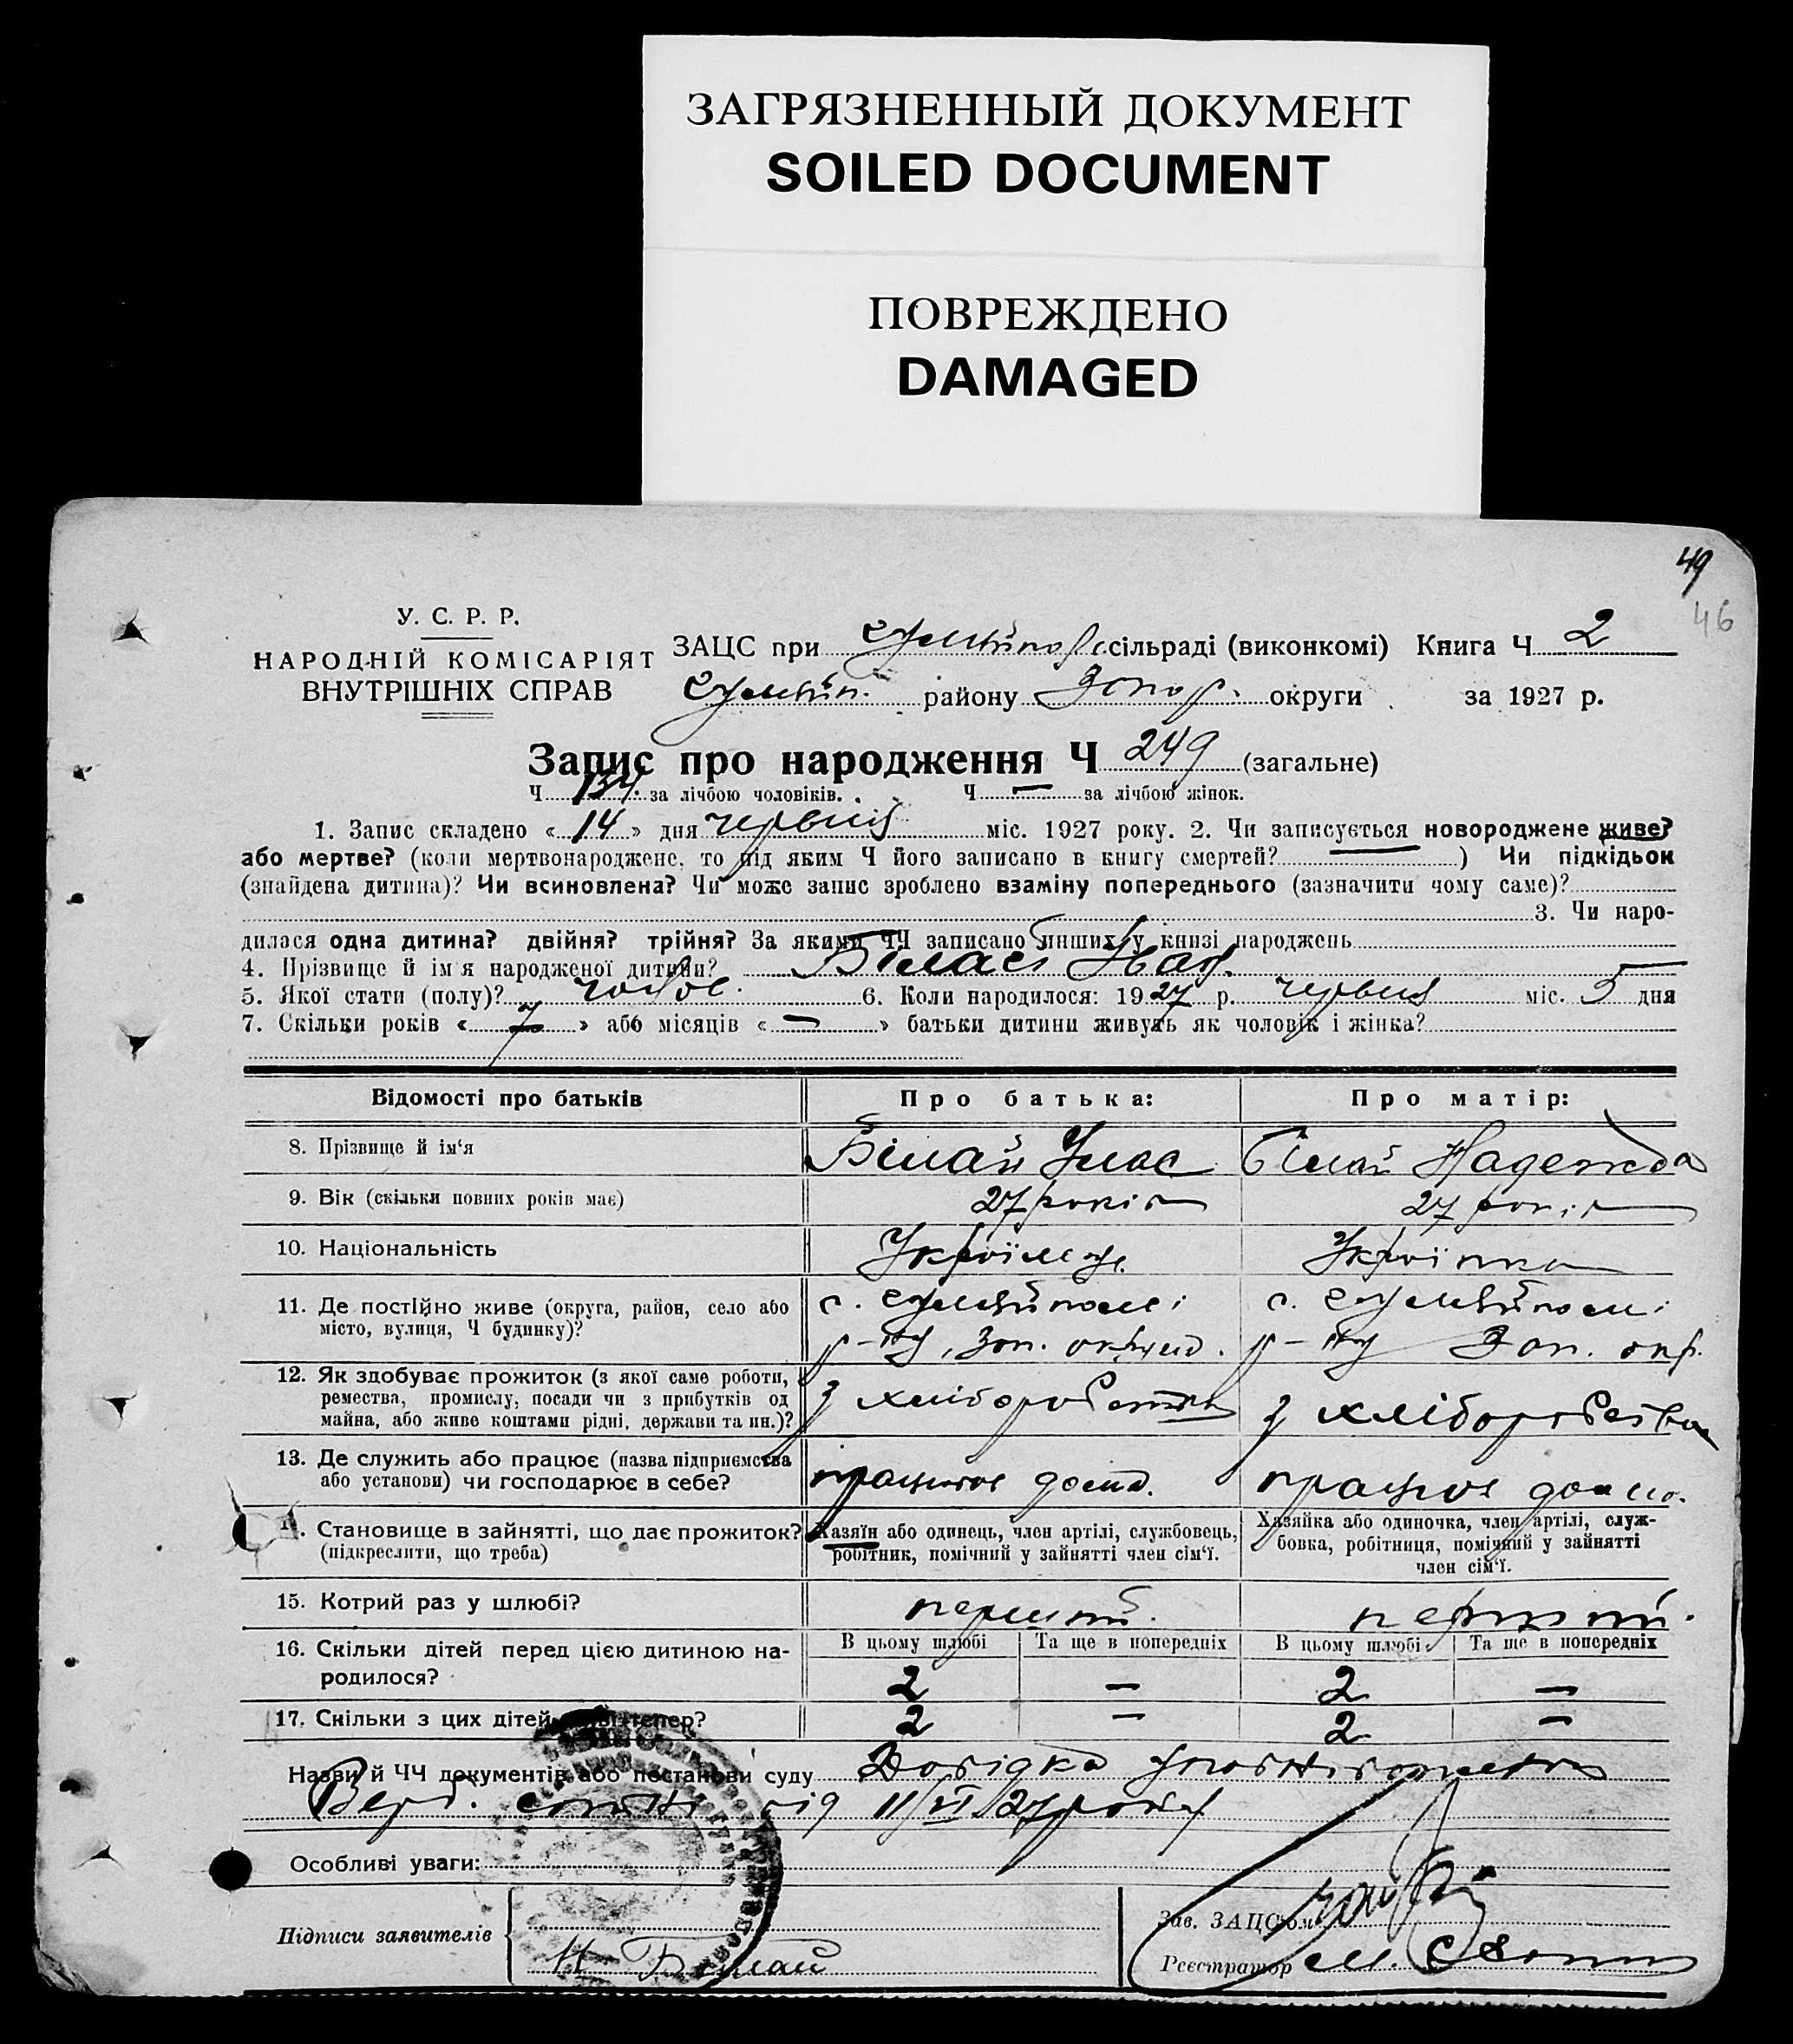 ЗАГРЯЗНЕННЫЙ ДОКУМЕНТ
SOILED DOCUMENT
ПОВРЕЖДЕНО
DAMAGED
49
46
У. С. Р. Р.
НАРОДНІЙ КОМІСАРІЯТ
ВНУТРІШНІХ СПРАВ
ЗАЦС при сільраді (виконкомі) Книга Ч 2
району Запор. округи за 1927 р.
Запис про народження Ч 249 (загальне)
Ч 134. за лічбою чоловіків. Ч — за лічбою жінок.
1. Запис складено « 14 » дня червня міс. 1927 року. 2. Чи записується новороджене живе?
або мертве? (коли мертвонароджене, то під яким Ч його записано в книгу смертей? ) Чи підкідьок
(знайдена дитина)? Чи всиновлена? Чи може запис зроблено взаміну попереднього (зазначити чому саме)?
3. Чи наро-
дилася одна дитина? двійня? трійня? За якими ЧЧ записано инших у книзі народжень
4. Прізвище й ім'я народженої дитини? Білай
5. Якої стати (полу)? чолов. 6. Коли народилося: 1927 р. червня міс. 5 дня
7. Скільки років « 7 » або місяців « — » батьки дитини живуть як чоловік і жінка?
Відомості про батьків
Про батька:
Про матір:
8. Прізвище й ім'я
Білай Улас
Білай Надежда
9. Вік (скільки повних років має)
27 років
27 років
10. Національність
Українец
Українка
11. Де постійно живе (округа, район, село або
місто, вулиця, Ч будинку)?
с.
р-ну, Зап. округи.
с.
р-ну Зап. окр.
12. Як здобуває прожиток (з якої саме роботи,
ремества, промислу, посади чи з прибутків од
майна, або живе коштами рідні, держави та ин.)?
з хліборобства
з хліборобства
13. Де служить або працює (назва підприємства
або установи) чи господарює в себе?
працює дома.
працює дома.
14. Становище в зайнятті, що дає прожиток?
(підкреслити, що треба)
Хазяїн або одинець, член артілі, службовець,
робітник, помічний у зайнятті член сім'ї.
Хазяйка або одиночка, член артілі, служ-
бовка, робітниця, помічний у зайнятті
член сім'ї.
15. Котрий раз у шлюбі?
перший.
перший.
16. Скільки дітей перед цією дитиною на-
родилося?
В цьому шлюбі Та ще в попередніх В цьому шлюбі Та ще в попередніх
2 — 2 —
17. Скільки з цих дітей живі тепер?
2 — 2 —
Назви й ЧЧ документів або постанови суду Довідка
від 11/VI 27 року
Особливі уваги:
Підписи заявителів
Н Білай
Зав. ЗАЦС'ом
Реєстратор М.